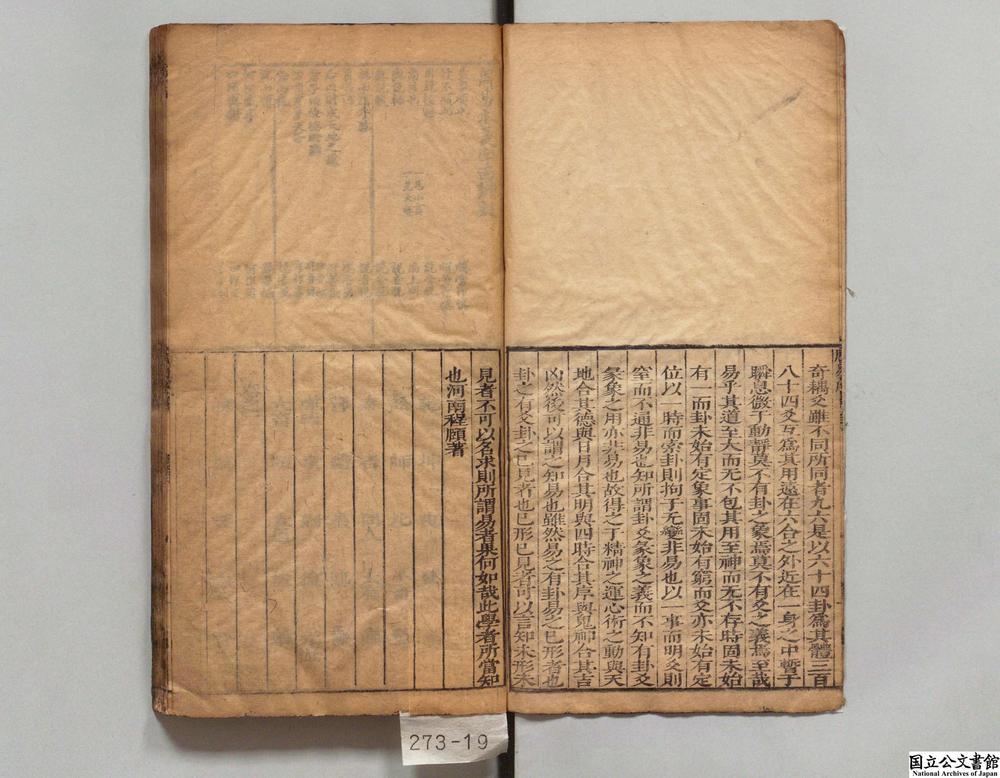 奇耦爻雖不同所同者九六是以六十四卦爲其體三百
八十四爻互爲其用遠在六合之外近在一身之中暫于
瞬息微于動靜莫不有卦之象焉莫不有爻之義焉至哉
易乎其道至大而无不包其用至神而无不存時固未始
有一而卦未始有定象事固未始有窮而爻亦未始有定
位以一時而索卦則拘于无變非易也以一事而明爻則
窒而不通非易也知所謂卦爻彖象之義而不知有卦爻
彖象之用亦非易也故得之于精神之運心術之動與天
地合其德與日月合其明與四時合其序與鬼神合其吉
凶然後可以謂之知易也雖然易之有卦易之已形者也
卦之有爻卦之已見者也已形已見者可以言知未形未
見者不可以名求則所謂易者果何如哉此學者所當知
也河南程頤著
273-19
国立公文書館
National Archives of Japan